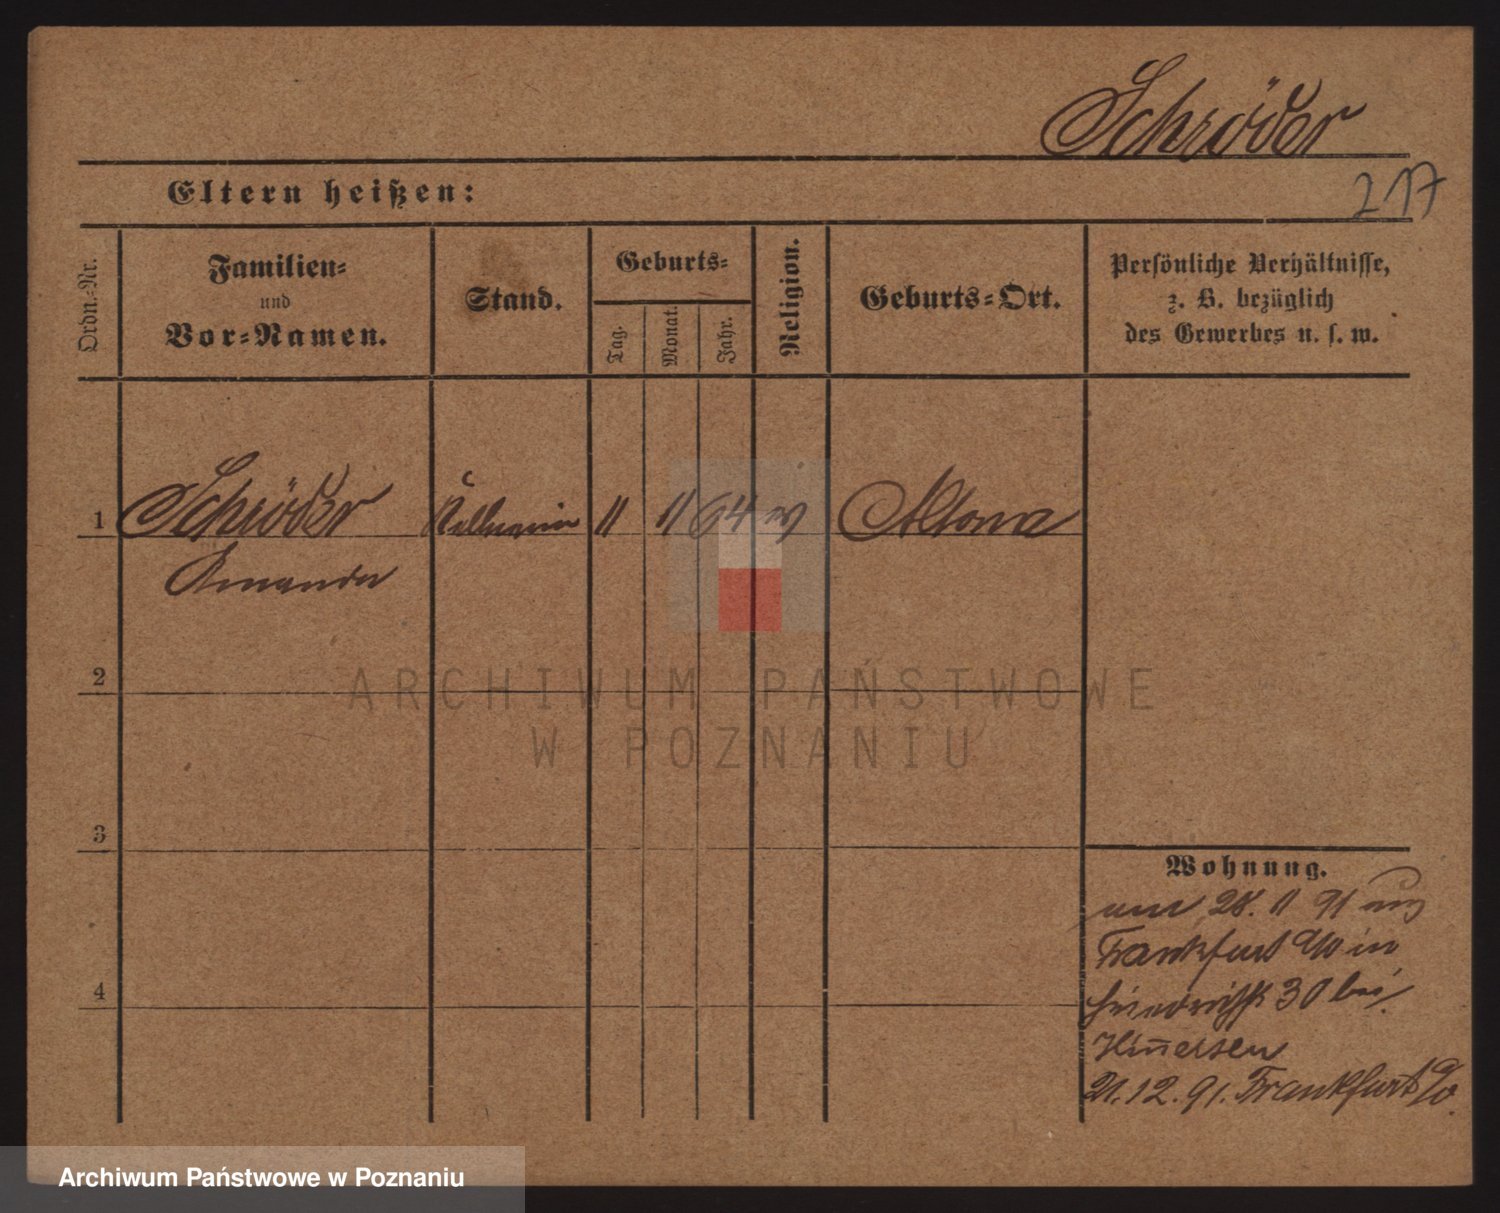 Schröder
217
Eltern heißen:
Ordn.-Nr.
Familien-
und
Vor-Namen.
Stand.
Geburts-
Tag.
Monat.
Jahr.
Religion.
Geburts-Ort.
Persönliche Verhältnisse,
z. B. bezüglich
des Gewerbes u. s. w.
1 Schröder Kellnerin 11 11 64 Altona
Amanda
2
3
4
Wohnung.
28. 11 91 aus
Frankfurt a/o in
Friedrichstr 30 bei
21.12.91. Frankfurt a/o.
ARCHIWUM PAŃSTWOWE
W POZNANIU
Archiwum Państwowe w Poznaniu